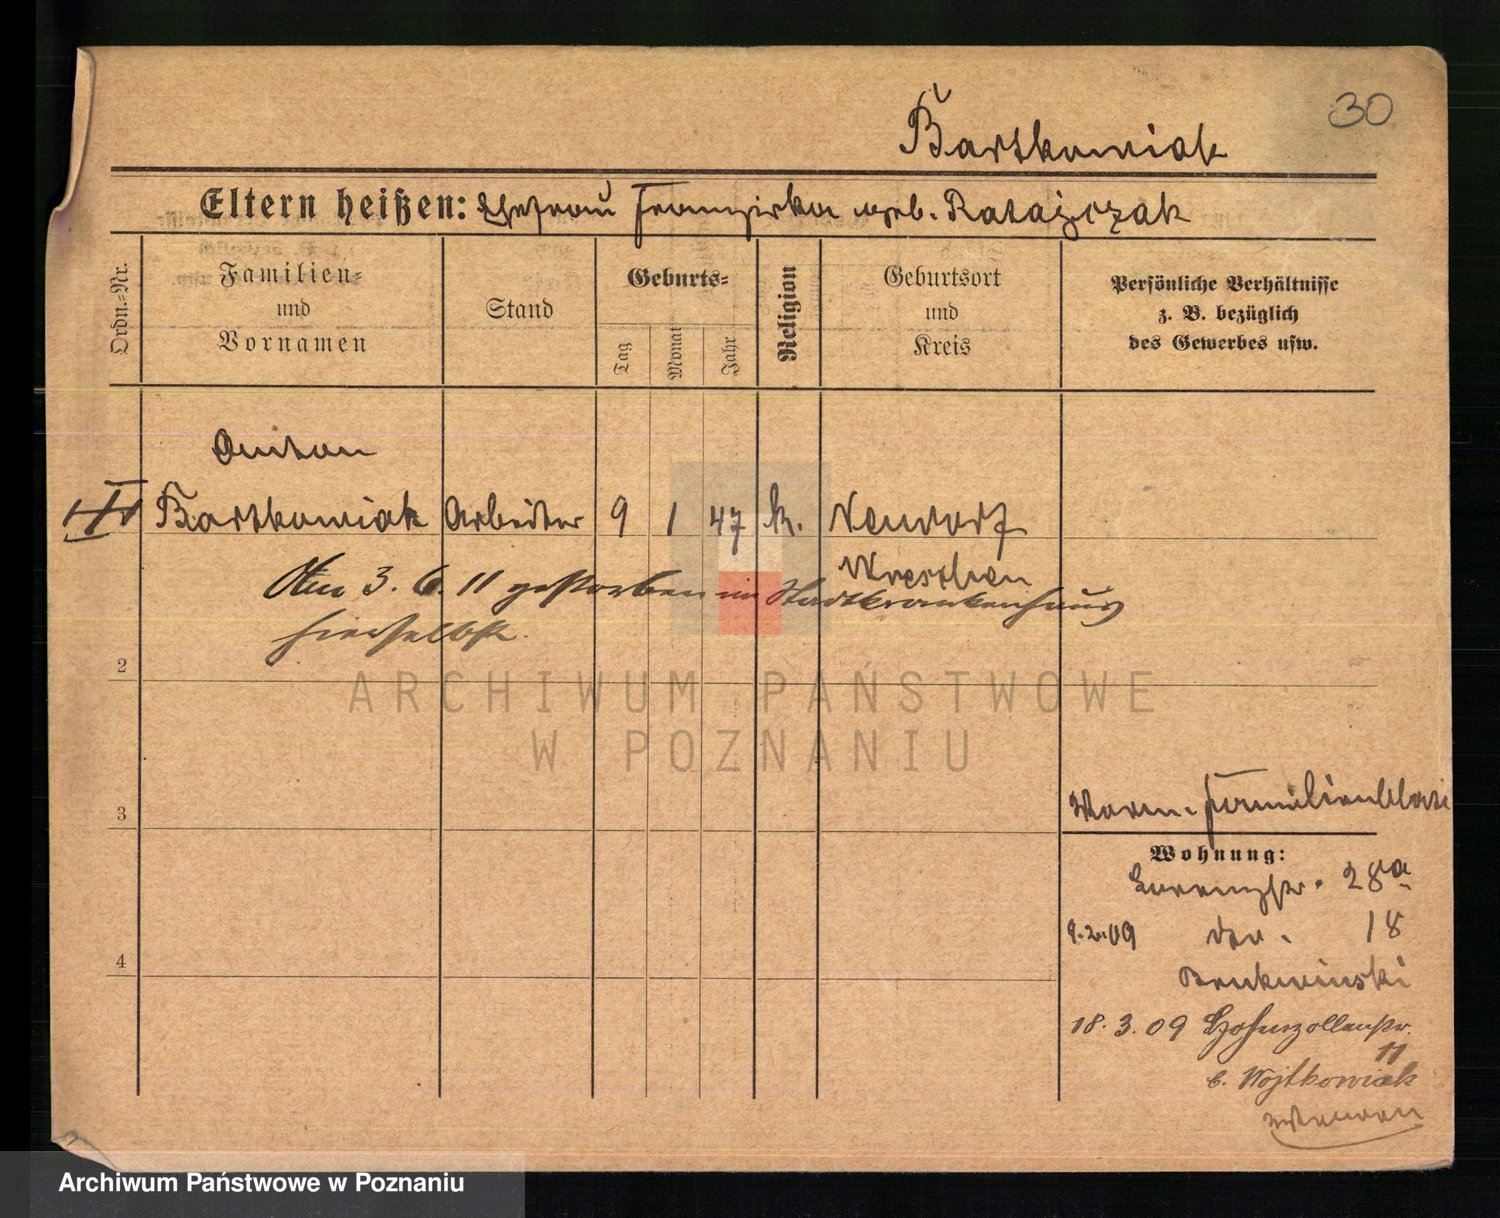 30
Bartkowiak
Eltern heißen: Ehefrau Franziska geb. Ratajczak
Ordn.=Nr.
Familien=
und
Vornamen
Stand
Geburts=
Tag
Monat
Jahr
Religion
Geburtsort
und
Kreis
Persönliche Verhältnisse
z. B. bezüglich
des Gewerbes usw.
Anton
Bartkowiak Arbeiter 9 1 47 k. Neudorf
Wreschen
Am 3. 6. 11 gestorben im Stadtkrankenhaus
hierselbst.
2
3
4
Familienblatt
Wohnung:
28a
9.2.09 18
18.3.09 Hohenzollernstr.
11
b. Wojtkowiak
ARCHIWUM PAŃSTWOWE
W POZNANIU
Archiwum Państwowe w Poznaniu